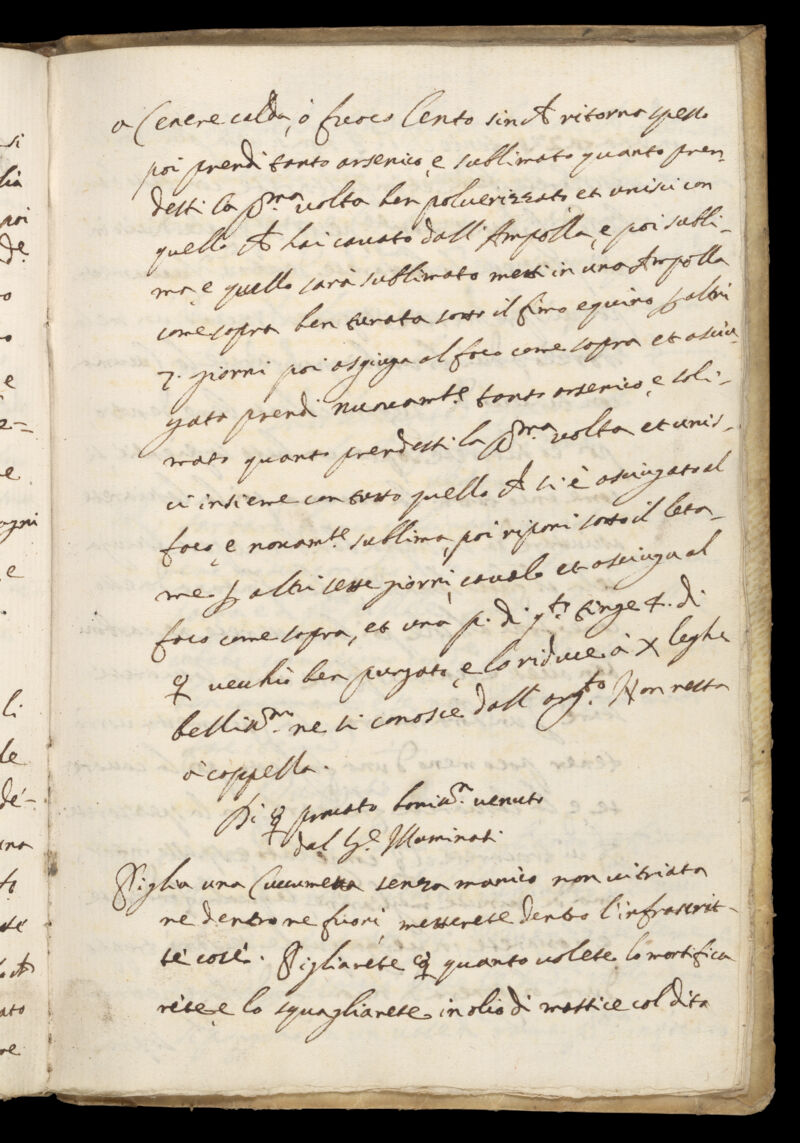 a Cenere calda, ò fuoco lento sin ch ritorna spesso
poi prendi tanto arsenico, e sublimato quanto pren
desti la pma volta ben polverizzato et unisci con
quello ch hai cavato dall' Ampolla, e poi subli-
ma, e quello sarà sublimato metti in una Ampolla
come sopra ben turata sotto il fimo equino p altri
7. giorni poi asciuga al foco come sopra et asciu-
gata prendi nuovamte tanto arsenico, e soli-
mato quanto prendesti la pma volta et unis-
ci insieme con tutto quello ch si è asciugato al
foco, e novamte sublima, poi riponi sotto il leta-
me p altri sette giorni, cavalo et asciuga al
foco come sopra, et una p. di qto tinge 4. di
☿ vecchio ben purgato, e lo riduce à X leghe
bellissmo ne si conosce dall' argto Non resta
à coppella.
Di ☿ provato bonissmo venuto
dal Illuminati
Piglia una Cucumetta senza manico non vitriata
ne dentro ne fuori, metterete dentro l'infrascrit-
te cose. Pigliarete ☿ quanto volete lo mortifica
rete, e lo squagliarete in olio di mastice col dito